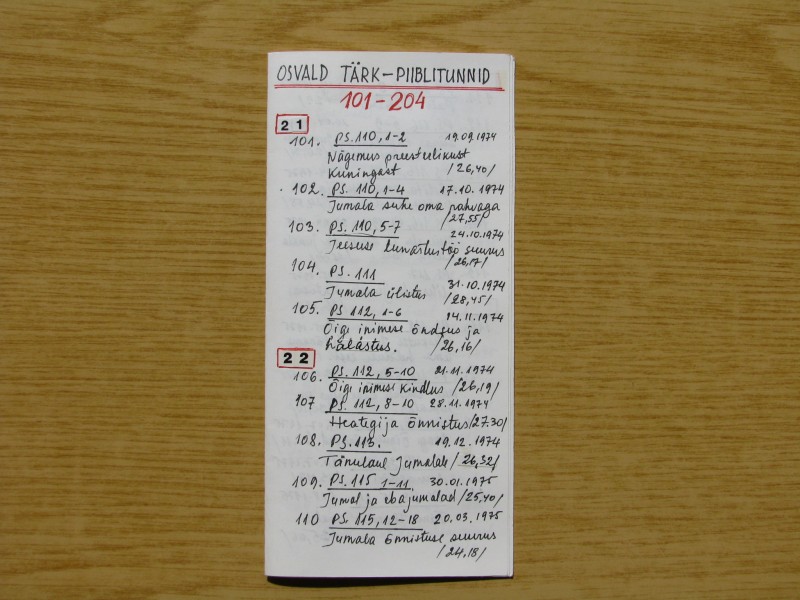 OSVALD TÄRK-PIIBLITUNNID
101-204
21
101. PS. 110, 1-2 19.09.1974
Nägemus preesterlikust
Kuningast /26,40/
102. PS. 110, 1-4 17.10.1974
Jumala suhe oma rahvaga
/27,55/
103. PS. 110, 5-7 24.10.1974
Jeesuse lunastustöö suurus
/26,17/
104. PS. 111 31.10.1974
Jumala ülistus /28,45/
105. PS 112, 1-6 14.11.1974
Õige inimese õndsus ja
halastus. /26,16/
22
106. PS. 112, 5-10 21.11.1974
Õige inimese kindlus /26,19/
107 PS. 112, 8-10 28.11.1974
Heategija õnnistus /27.30/
108. PS. 113. 19.12.1974
Tänulaul Jumalale /26,32/
109. PS. 115 1-11. 30.01.1975
Jumal ja ebajumalad /25,40/
110 PS. 115, 12-18 20.03.1975
Jumala õnnistuse suurus
/24,18/